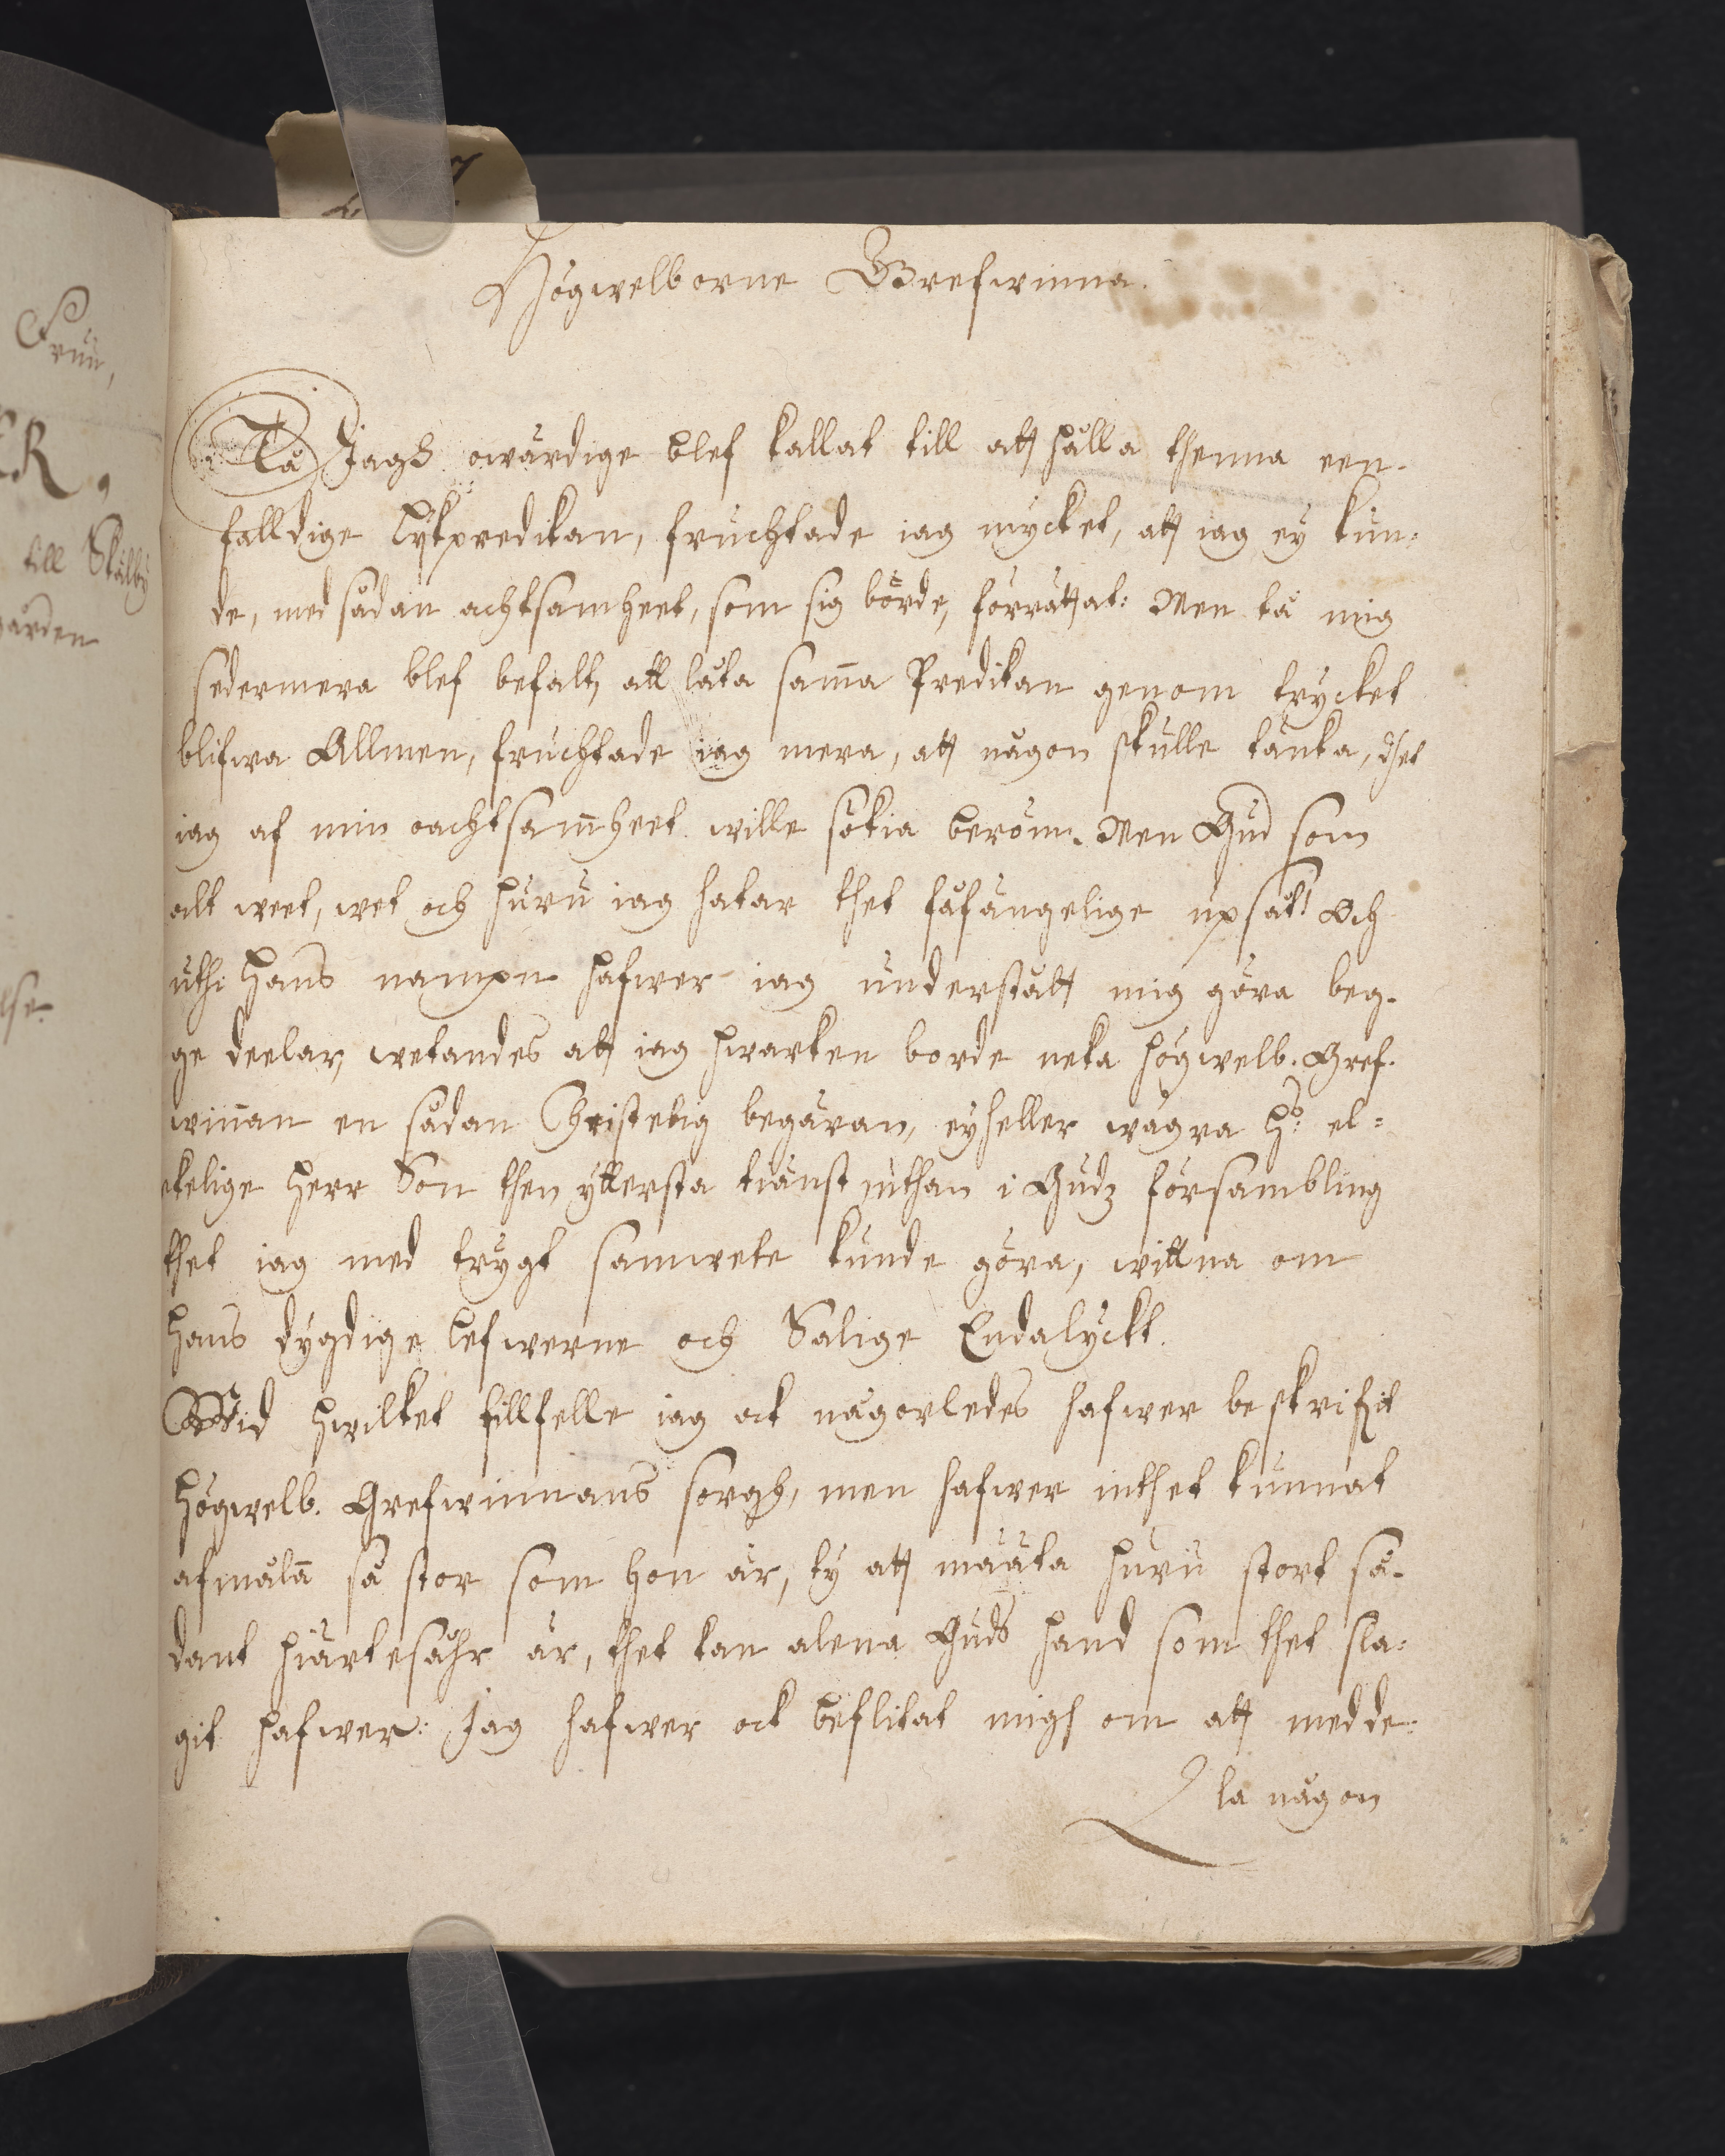 Högwelborne Grefwinna.
Tå Jagh owärdige blef kallat till att hålla thenna een-
falldige lijkpredikan, fruchtade iag mycket, att iag ey kun-
de, med sådan achtsamheet, som sig börde, förrättat: Men tå mig
sedermera blef befalt, att låta sam̃a Predikan genom trycket
blifwa Allmen, fruchtade iag mera, att någon skulle tänka, thet
iag af min oachtsam̃heet wille sökia beröm. Men Gud som
alt weet, wet och huru iag hatar thet fåfängelige upsåt! Och
uthi Hans nampn hafwer iag understått mig göra beg-
ge deelar, wetandes att iag hwarken borde neka högwelb. Gref-
win̄an en sådan Christelig begäran, eyheller wägra H:s el-
skelige Herr Son then ytterste tiänst uthan i Gudz försambling
thet iag med trygt samwete kunde göra, wittna om
Hans dygdige lefwerne och Salige Endalyckt.
Wid hwilket tillfelle iag ock någorledes hafwer beskrifvit
Högwelb. Grefwinnans sorgh, men hafwer inthet kunnat
afmåla så stor som hon är, ty att mäåta huru stort så-
dant hiärtesåhr är, thet kan alena Guds hand som thet sla-
git hafwer: Jag hafwer ock beflitat migh om att medde-
la någon
Fruu,
ER,
till Skälby
gården
lse.